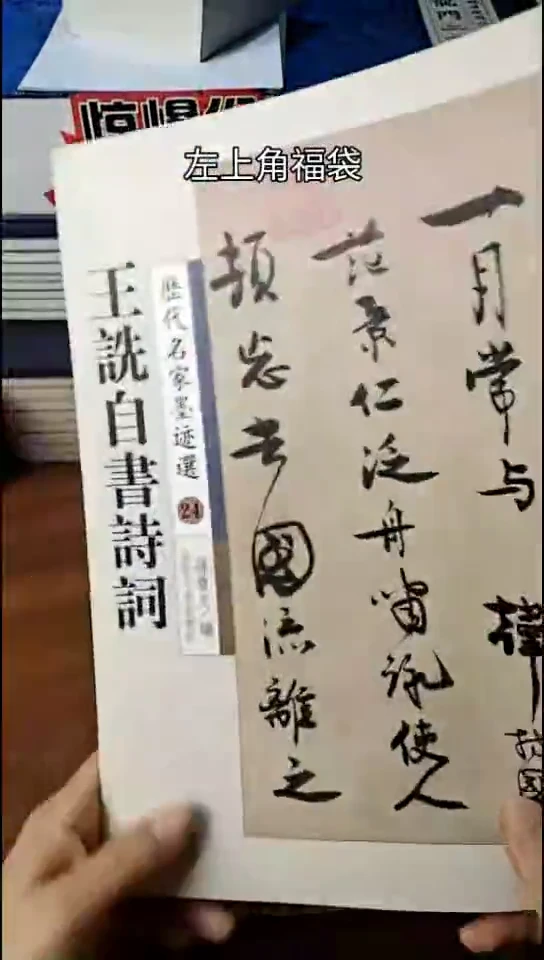 左上角福袋
王詵自書詩詞
歷代名家墨迹選
24
一月常与 韓
范景仁泛舟嘯詠使人
頗忘去國流離之